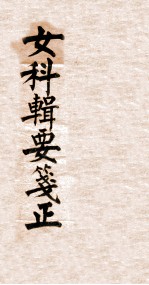 女科輯要箋正